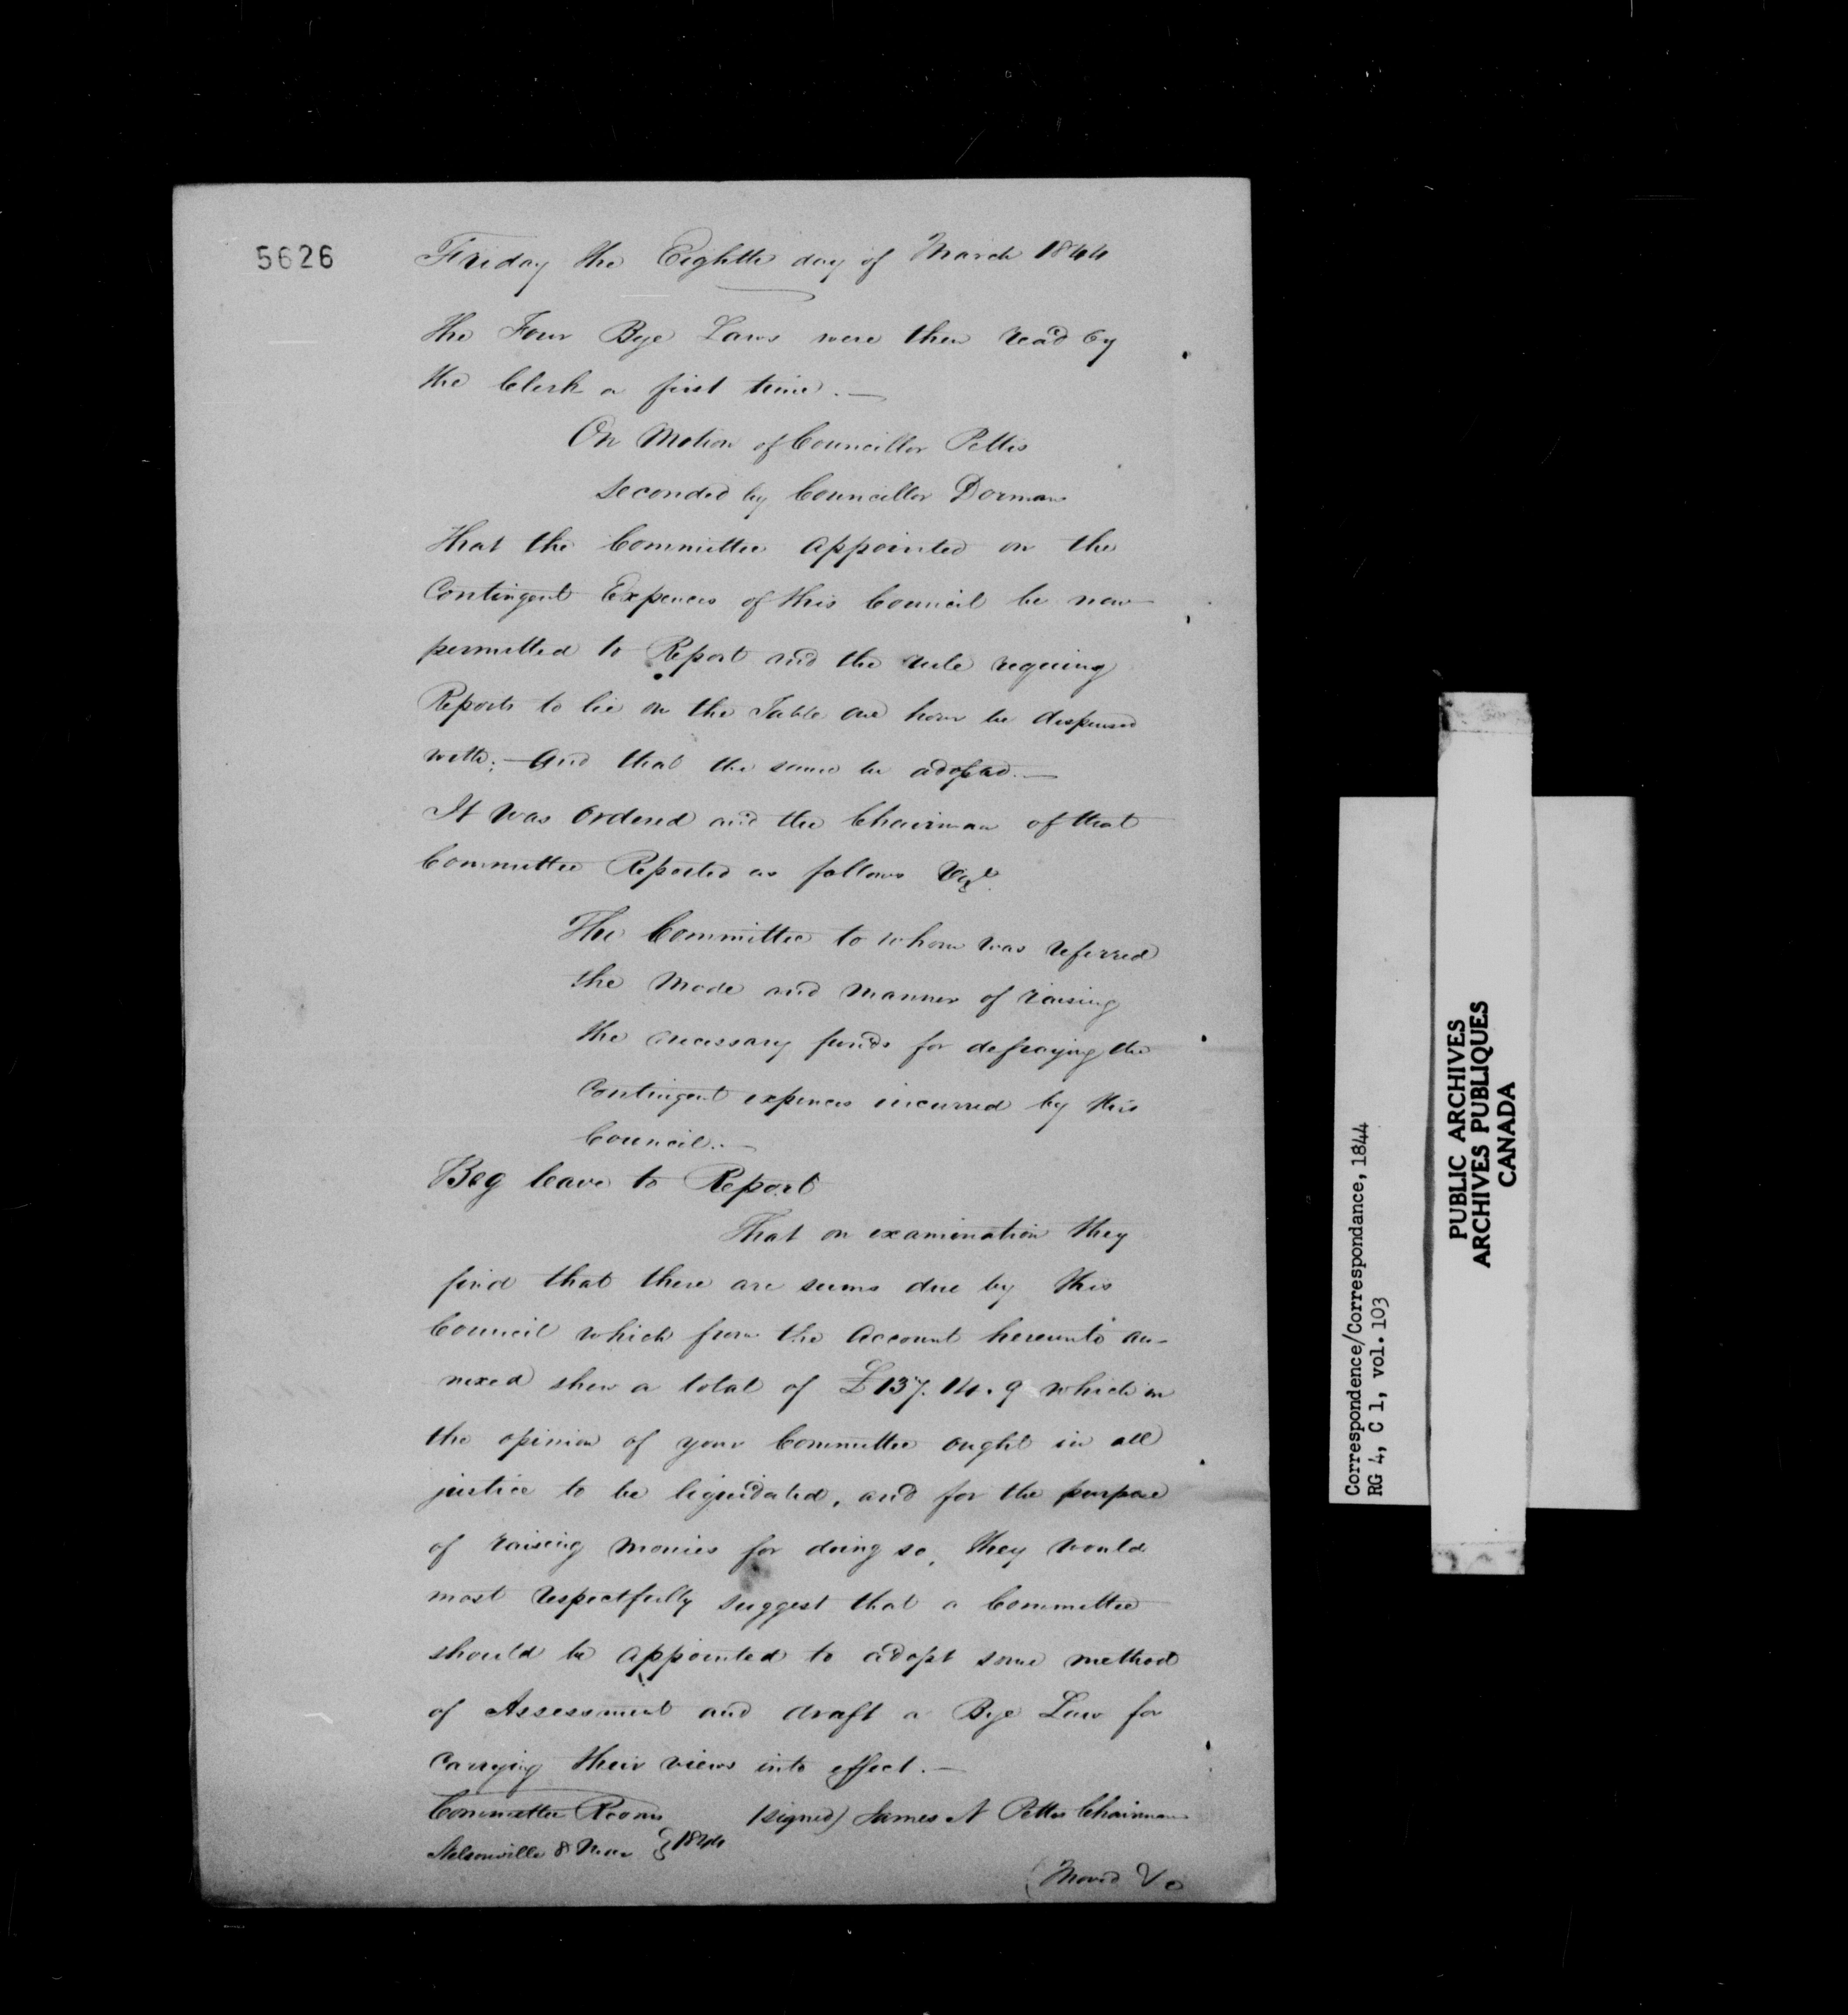 5626
Friday the Eighth day of March 1844
The Four Bye Laws were then read by
the Clerk a first time. —
On Motion of Councillor Pettis
Seconded by Councillor Dorman
That the Committee appointed on the
Contingent Expences of this Council be now
permitted to Report and the rule requiring
Reports to lie on the Table one hour be dispensed
with; — And that the same be adopted. —
It was Ordered and the Chairman of that
Committee Reported as follows Vizt.
The Committee to whom was referred
the Mode and Manner of raising
the necessary funds for defraying the
Contingent expences incurred by this
Council. —
Beg leave to Report
That on examination they
find that there are sums due by this
Council which from the Account hereunto an-
nexed shew a total of £137.14.9 which in
the opinion of your Committee ought in all
justice to be liquidated, and for the purpose
of raising monies for doing so, they would
most respectfully suggest that a Committee
should be appointed to adopt some method
of Assessment and draft a Bye Law for
carrying their views into effect. —
Committee Room (signed) James N Pettis Chairman
Nelsonville 8 Mar 1844
(Moved
Correspondence/Correspondance, 1844
RG 4, C 1, vol. 103
PUBLIC ARCHIVES
ARCHIVES PUBLIQUES
CANADA